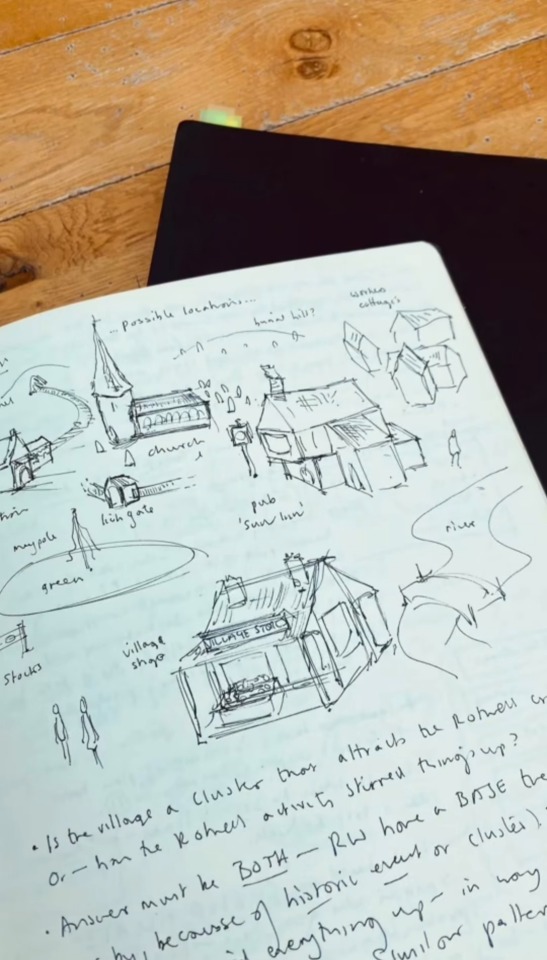 ...possible locations...
burial hill?
workers
cottages
church
lichgate
pub
'Sun Inn'
maypole
green
river
stocks
village
shop
VILLAGE STORE
• Is the village a cluster that attracts the Rotwell
Or – has the Rotwell activity stirred things up?
• Answer must be BOTH – RW have a BASE
by, because of historic event or cluster).
everything up – in way
Similar